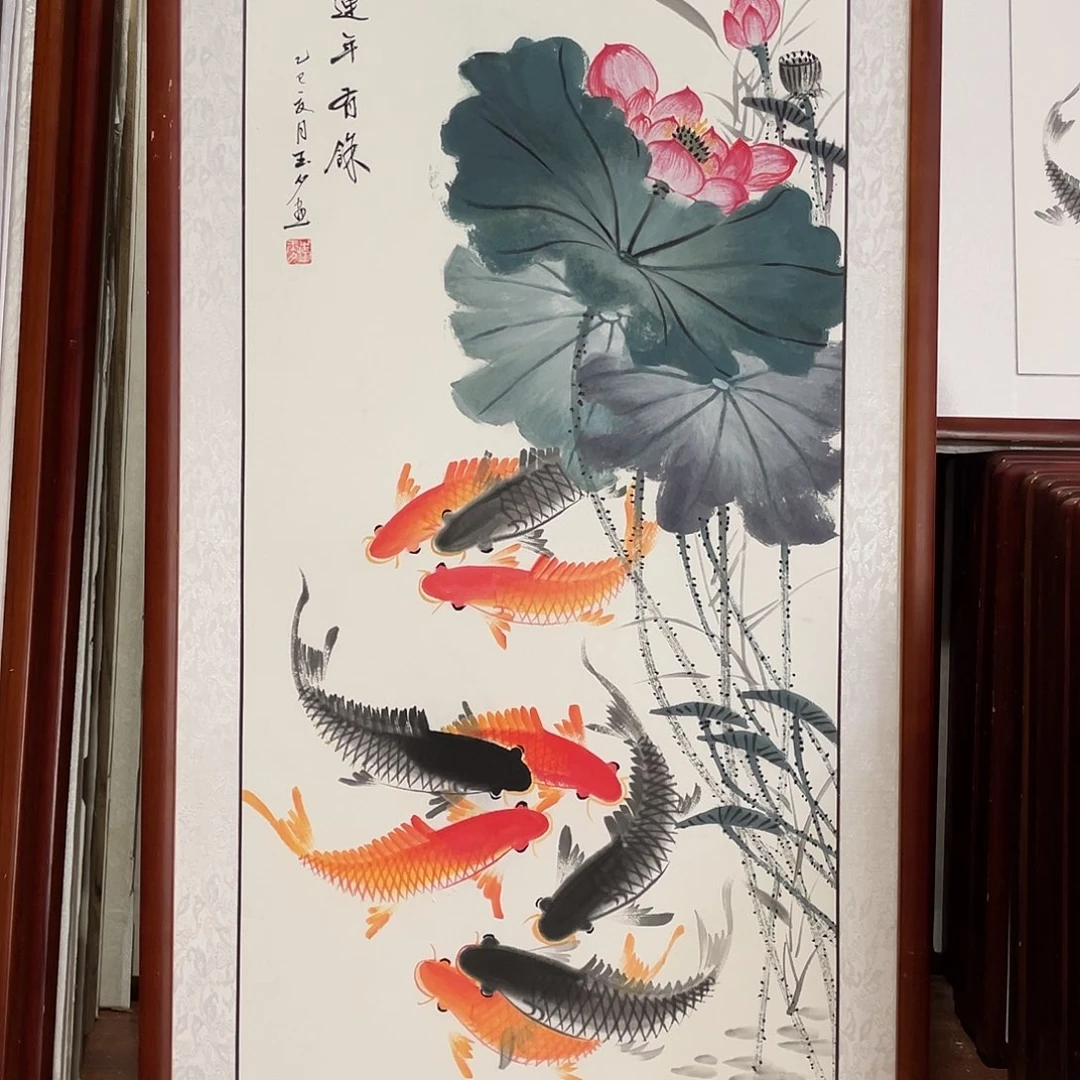 連年有餘
乙巳夏月玉畫